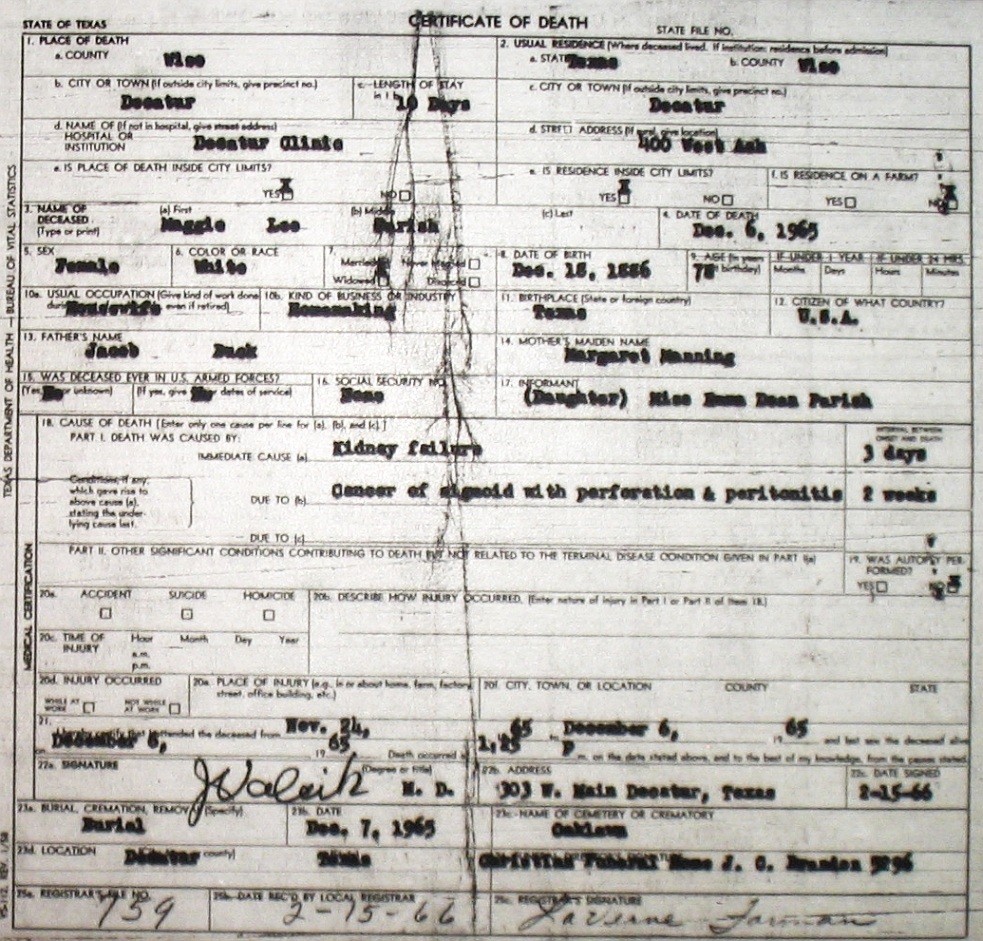 STATE OF TEXAS
CERTIFICATE OF DEATH
STATE FILE NO.
1. PLACE OF DEATH
a. COUNTY
Wise
2. USUAL RESIDENCE (Where deceased lived. If institution: residence before admission)
a. STATE Texas b. COUNTY Wise
b. CITY OR TOWN (If outside city limits, give precinct no.)
Decatur
c. LENGTH OF STAY
in 1 b.
10 Days
c. CITY OR TOWN (If outside city limits, give precinct no.)
Decatur
d. NAME OF (If not in hospital, give street address)
HOSPITAL OR
INSTITUTION
Decatur Clinic
d. STREET ADDRESS (If rural, give location)
400 West Ash
e. IS PLACE OF DEATH INSIDE CITY LIMITS?
YES X NO
e. IS RESIDENCE INSIDE CITY LIMITS?
YES X NO
f. IS RESIDENCE ON A FARM?
YES NO X
3. NAME OF
DECEASED
(Type or print)
(a) First
Maggie Lee
(b) Middle
Parish
(c) Last
4. DATE OF DEATH
Dec. 6, 1965
5. SEX
Female
6. COLOR OR RACE
White
7.
Married Never Married
Widowed X Divorced
8. DATE OF BIRTH
Dec. 15, 1886
9. AGE (In years
birthday)
78
IF UNDER 1 YEAR
Months Days
IF UNDER 24 HRS.
Hours Minutes
10a. USUAL OCCUPATION (Give kind of work done
during even if retired)
Housewife
10b. KIND OF BUSINESS OR INDUSTRY
Homemaking
11. BIRTHPLACE (State or foreign country)
Texas
12. CITIZEN OF WHAT COUNTRY?
U.S.A.
13. FATHER'S NAME
Jacob Buck
14. MOTHER'S MAIDEN NAME
Margaret Manning
15. WAS DECEASED EVER IN U.S. ARMED FORCES?
(Yes, No or unknown) (If yes, give No or dates of service)
16. SOCIAL SECURITY NO.
None
17. INFORMANT
(Daughter) Miss Emma Dean Parish
18. CAUSE OF DEATH [Enter only one cause per line for (a), (b), and (c).]
PART I. DEATH WAS CAUSED BY:
IMMEDIATE CAUSE (a)
Kidney failure
INTERVAL BETWEEN
ONSET AND DEATH
3 days
Conditions, if any,
which gave rise to
above cause (a),
stating the under-
lying cause last.
DUE TO (b)
Cancer of sigmoid with perforation & peritonitis
2 weeks
DUE TO (c)
PART II. OTHER SIGNIFICANT CONDITIONS CONTRIBUTING TO DEATH BUT NOT RELATED TO THE TERMINAL DISEASE CONDITION GIVEN IN PART I(a)
19. WAS AUTOPSY PER-
FORMED?
YES NO X
20a. ACCIDENT SUICIDE HOMICIDE
20b. DESCRIBE HOW INJURY OCCURRED. (Enter nature of injury in Part I or Part II of Item 18.)
20c. TIME OF
INJURY
Hour Month Day Year
a.m.
p.m.
20d. INJURY OCCURRED
WHILE AT
WORK
NOT WHILE
AT WORK
20e. PLACE OF INJURY (e.g., in or about home, farm, factory,
street, office building, etc.)
20f. CITY, TOWN, OR LOCATION COUNTY STATE
21.
I hereby certify that I attended the deceased from Nov. 24, 65 to December 6, 19 65 and last saw the deceased alive
on December 6, 19 65 Death occurred at 1:25 p m. on the date stated above, and to the best of my knowledge, from the causes stated.
22a. SIGNATURE
(Degree or title)
M. D.
22b. ADDRESS
303 W. Main Decatur, Texas
22c. DATE SIGNED
2-15-66
23a. BURIAL, CREMATION, REMOVAL (Specify)
Burial
23b. DATE
Dec. 7, 1965
23c. NAME OF CEMETERY OR CREMATORY
Oaklawn
23d. LOCATION
Decatur county) Texas
Christian Funeral Home J. C. Brandon 5296
25a. REGISTRAR'S FILE NO.
759
25b. DATE REC'D BY LOCAL REGISTRAR
2-15-66
25c. REGISTRAR'S SIGNATURE
LaVerne
TEXAS DEPARTMENT OF HEALTH — BUREAU OF VITAL STATISTICS
MEDICAL CERTIFICATION
VS-112 REV. 1/58